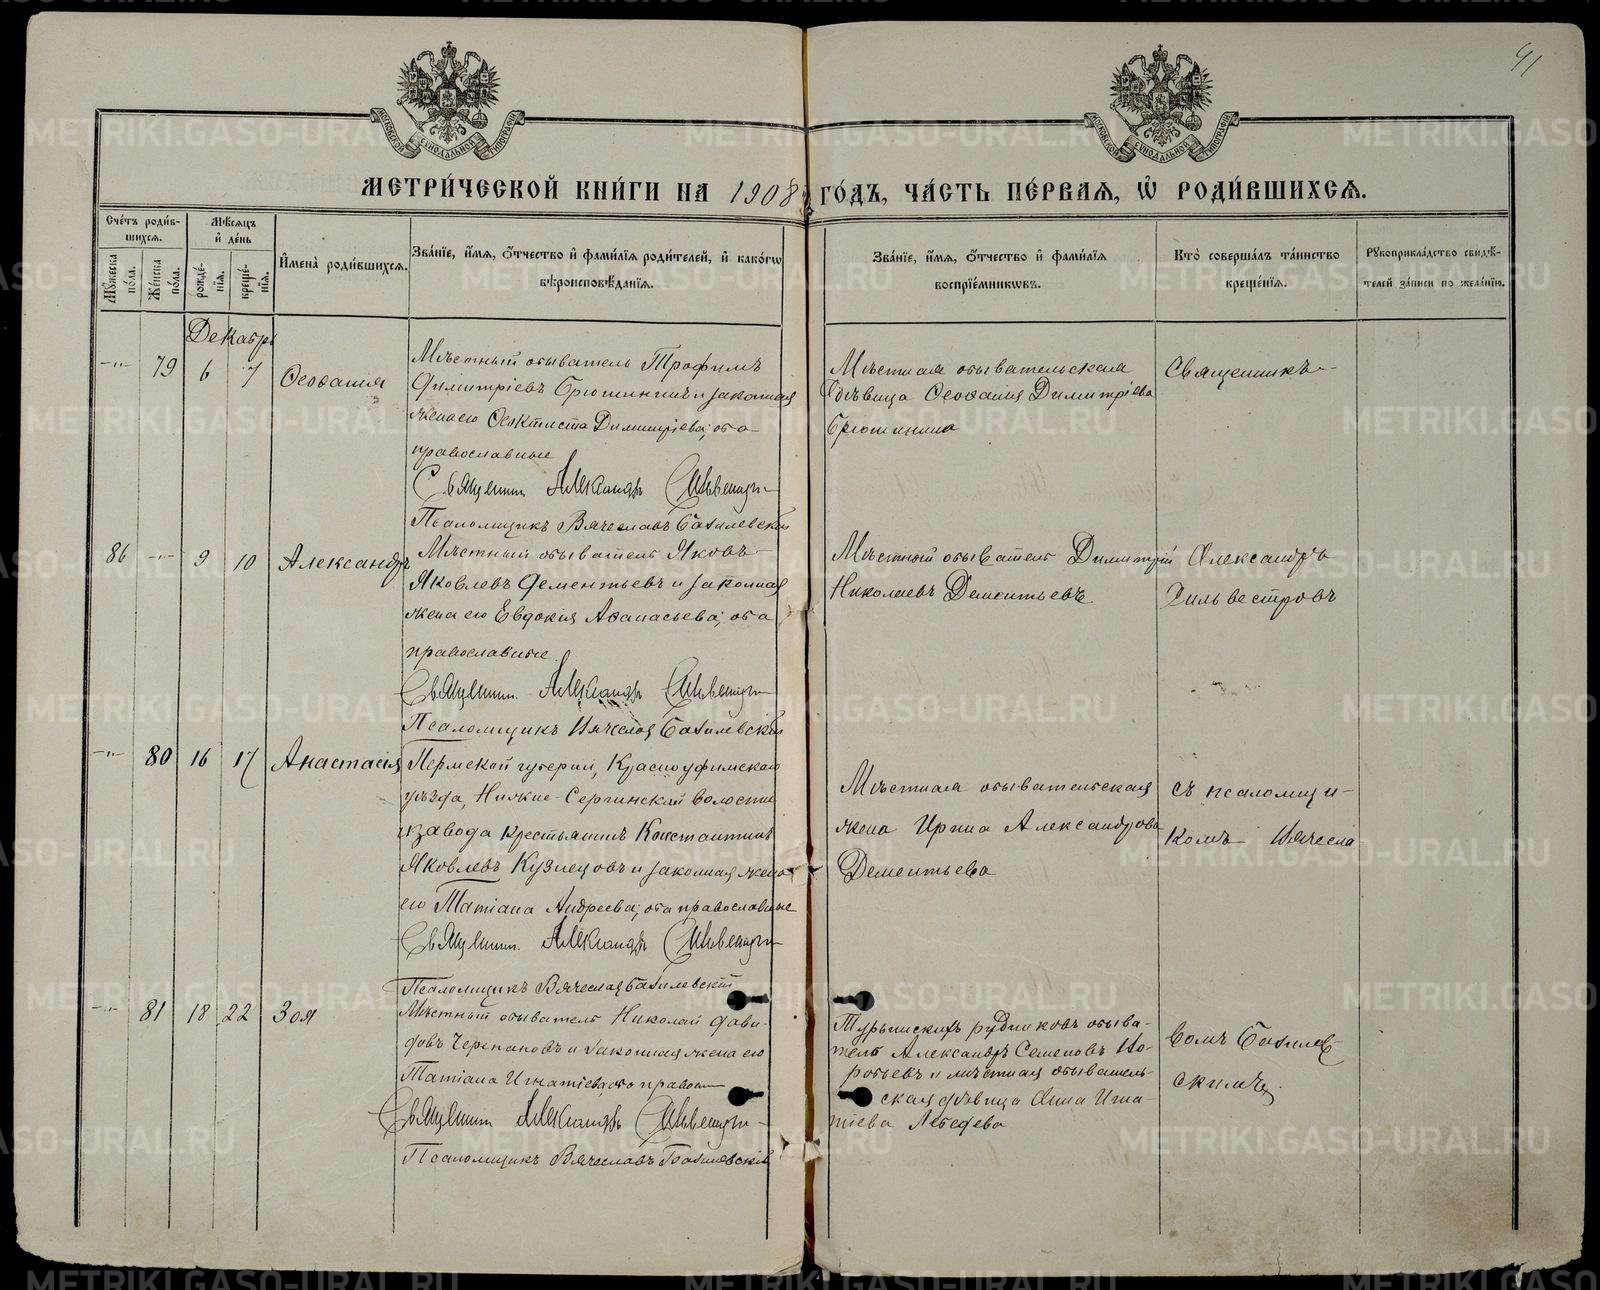 41
МОСКОВСКОЙ СѴНОДАЛЬНОЙ ТИПОГРАФІИ
МОСКОВСКОЙ СѴНОДАЛЬНОЙ ТИПОГРАФІИ
МЕТРИ́ЧЕСКОЙ КНИ́ГИ НА 1908 ГО́ДЪ, ЧА́СТЬ ПЕ́РВАЯ, Ѡ҆ РОДИ́ВШИХСЯ.
Сче́тъ роди́в-
шихся.
Мѣ́сяцъ
и҆ де́нь
Мꙋ́жеска
по́ла.
Же́нска
по́ла.
рожде́-
нїя.
креще́-
нїя.
И҆мена̀ роди́вшихся.
Зва́нїе, и҆́мя, ѻ҆́тчество и҆ фами́лїя роди́телей, и҆ како́гѡ
вѣроисповѣ́данїя.
Зва́нїе, и҆́мя, ѻ҆́тчество и҆ фами́лїя
воспрїе́мникѡвъ.
Кто̀ соверша́лъ та́инство
креще́нїя.
Рꙋкоприкла́дство свидѣ́-
телей за́писи по жела́нїю.
Декабрь
-"- 79 6 7 Ѳеофанія
Мѣстный обыватель Трофимъ
Димитріевъ Брюшининъ и законная
жена его Ѳеоктиста Димитріева; оба
православные
Священник Александръ Сильвестровъ
Псаломщикъ Вячеславъ Базилевскій
Мѣстная обывательская
дѣвица Ѳеофанія Димитріева
Брюшинина
Священникъ
86 -"- 9 10 Александръ
Мѣстный обыватель Яковъ
Яковлевъ Дементьевъ и законная
жена его Евдокія Аѳанасьева; оба
православные.
Священник. Александръ Сильвестровъ
Псаломщикъ Вячеслав Базилевскій
Мѣстный обыватель Димитрій
Николаевъ Дементьевъ
Александръ
Сильвестровъ
-"- 80 16 17 Анастасія
Пермской губерніи, Красноуфимскаго
уѣзда, Нижне-Сергинской волости
и завода крестьянинъ Константинъ
Яковлевъ Кузнецовъ и законная жена
его Татіана Андреева; оба православные
Священник. Александръ Сильвестровъ
Псаломщикъ Вячеслав Базилевскій
Мѣстная обывательская
жена Ирина Александрова
Дементьева
съ псаломщи-
комъ Вячесла
-"- 81 18 22 Зоя
Мѣстный обыватель Николай Дави-
довъ Черепановъ и законная жена его
Татіана Игнатіева оба правосл
Священник Александръ Сильвестровъ
Псаломщикъ Вячеславъ Базилевскій
Турьинскихъ рудниковъ обыва-
тель Александръ Семеновъ Во-
робьевъ и мѣстная обыватель-
ская дѣвица Анна Игна-
тіева Лебедева
вомъ Базилев-
скимъ.